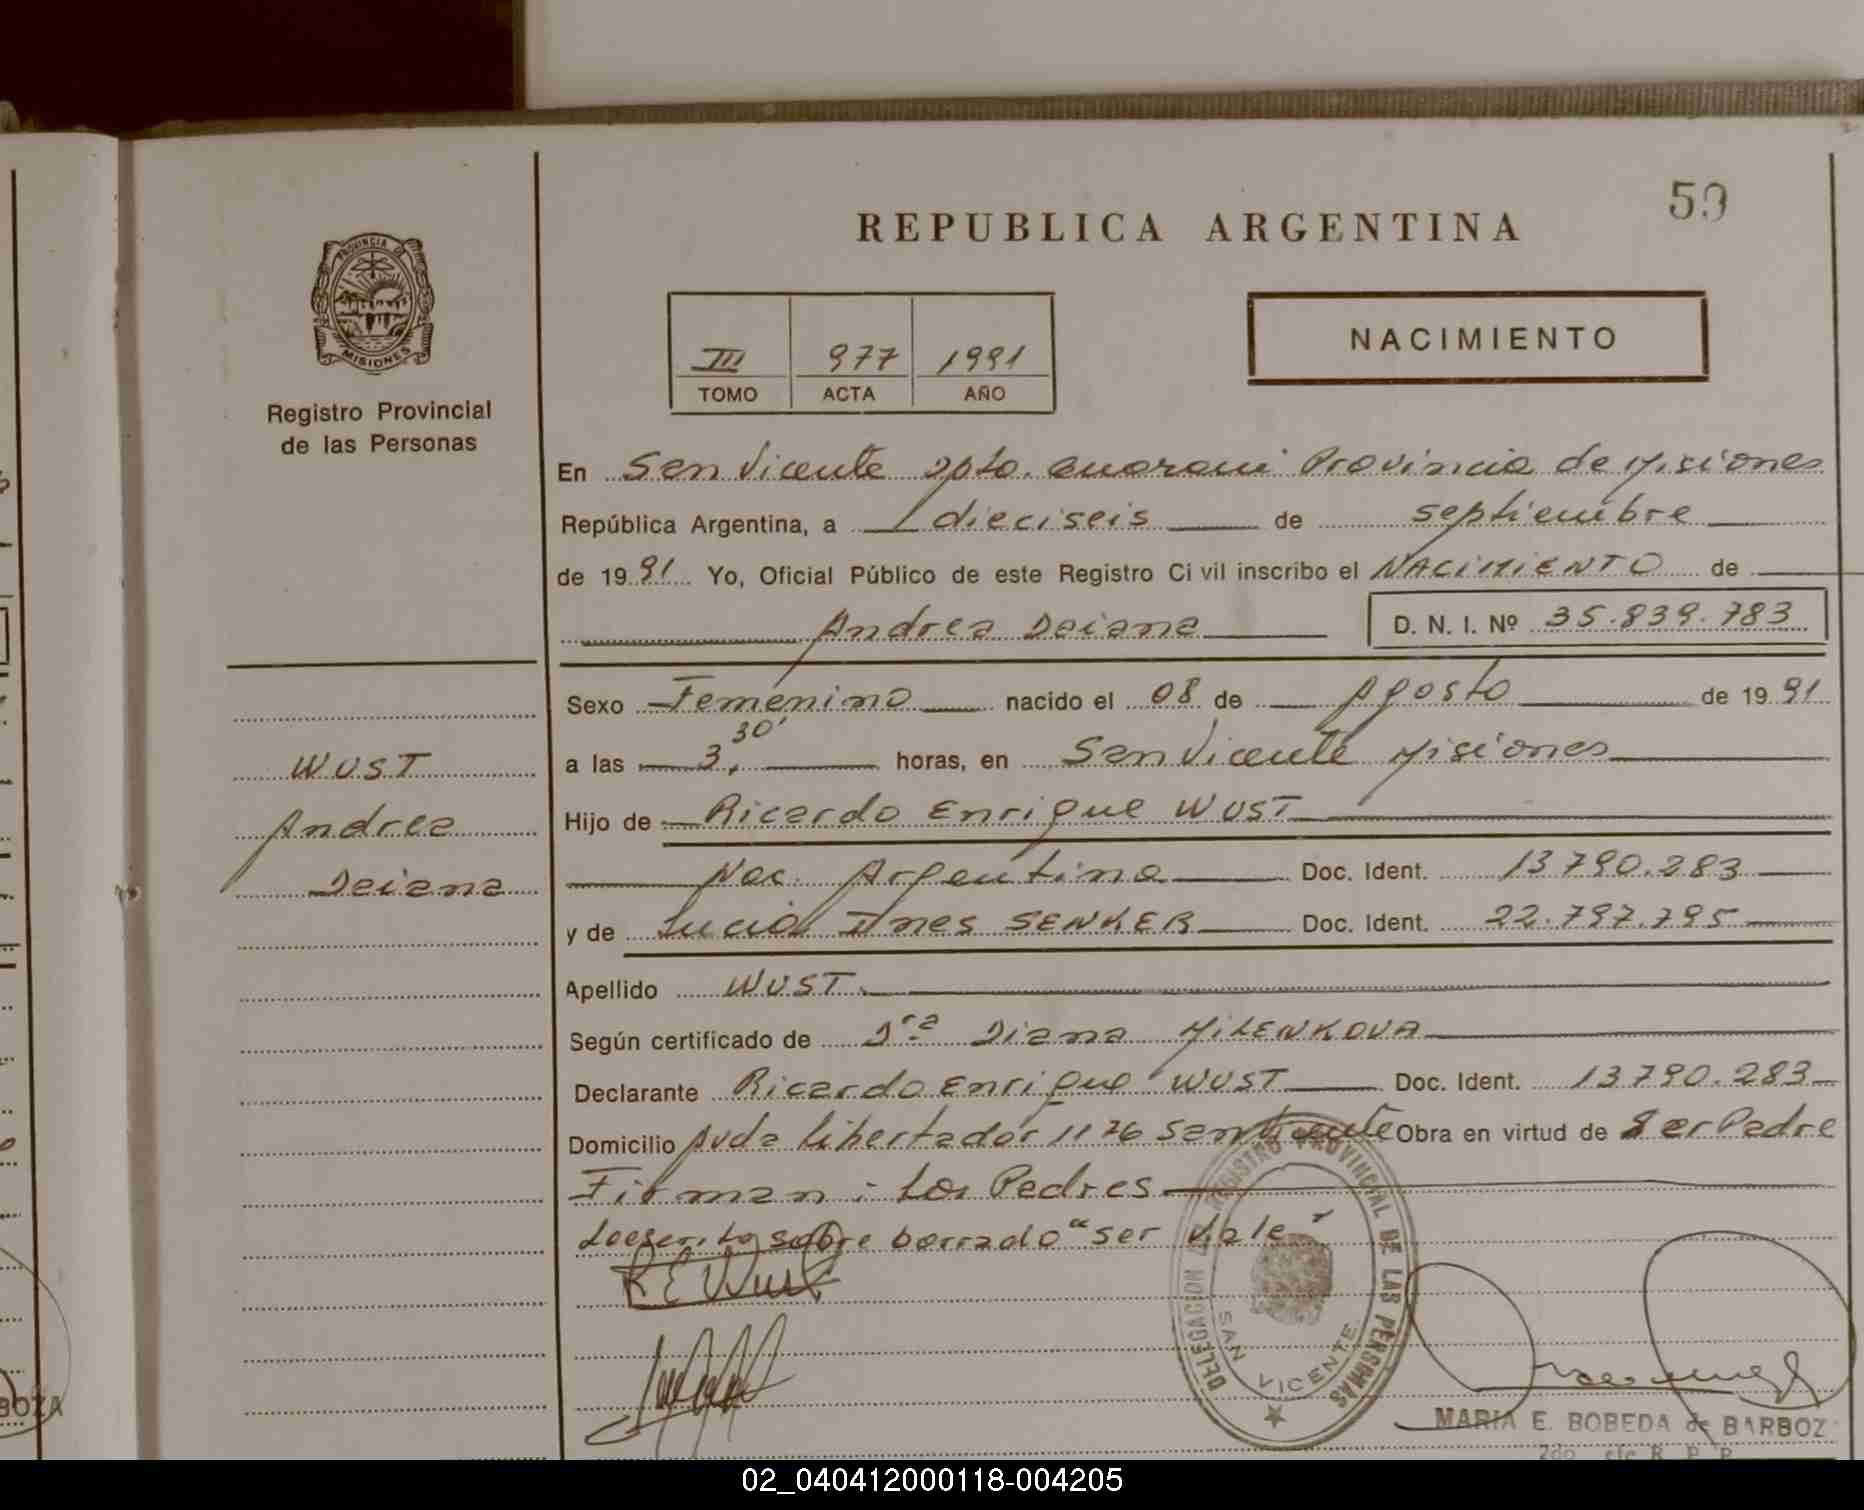 59
REPUBLICA ARGENTINA
PROVINCIA DE
MISIONES
Registro Provincial
de las Personas
III 977 1991
TOMO ACTA AÑO
NACIMIENTO
En San Vicente Dpto. Guarani Provincia de Misiones
República Argentina, a dieciseis de septiembre
de 19 91 Yo, Oficial Público de este Registro Civil inscribo el NACIMIENTO de
Andrea Daiana D. N. I. Nº 35.839.783
Sexo Femenino nacido el 08 de Agosto de 19 91
a las 3,30' horas, en San Vicente Misiones
Hijo de Ricardo Enrique WUST
Nac. Argentina Doc. Ident. 13790.283
y de Lucia Ines SENKER Doc. Ident. 22.797.795
Apellido WUST
Según certificado de Dra Diana MILENKOVA
Declarante Ricardo Enrique WUST Doc. Ident. 13790.283
Domicilio Avda Libertador 1176 San Vicente Obra en virtud de Ser Padre
Firman: Los Padres
Lo escrito sobre borrado "ser vale"
WUST
Andrea
Daiana
R E Wust
DELEGACION REGISTRO PROVINCIAL DE LAS PERSONAS
SAN VICENTE
MARIA E. BOBEDA de BARBOZ
R. P. P.
BOZA
02_040412000118-004205